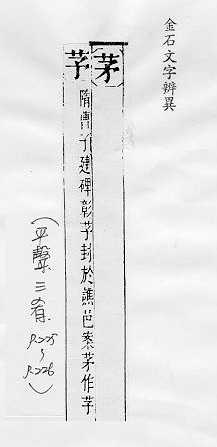 金石文字辨異
茅
芧 隋曹子建碑彰芧封於譙邑案茅作芧
(平聲三肴. P.225~P.226)